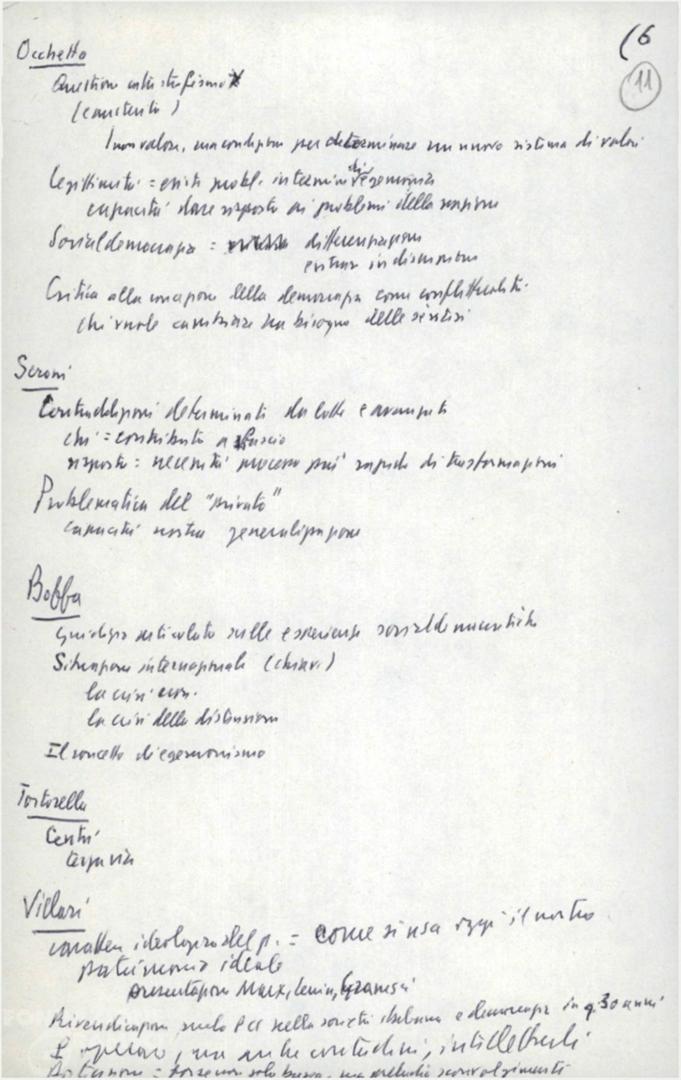 (6
11
Occhetto
Question
(
non valore, ma condizioni per determinare un nuovo sistema di valori
Legittimità = probl. in termini di egemonia
capacità dare risposta ai problemi della nazione
Socialdemocrazia = differenziazioni
entrare in discussione
Critica alla concezione della democrazia come conflittualità.
chi vuole cambiare ha bisogno delle sintesi
Seroni
Contraddizioni determinati da lotte e avanzate
chi = contributo a
risposta = necessità processo più rapido di trasformazioni
Problematica del "privato"
capacità nostra generalizzazione
Boffa
Giudizio articolato sulle esperienze socialdemocratiche
Situazione internazionale (
la crisi econ.
la crisi della distensione
Il concetto di egemonismo
Tortorella
Cestri
terza via
Villari
carattere ideologico del p. = come si usa oggi il nostro
patrimonio ideale
presentazione Marx, Lenin, Gramsci
Rivendicazione ruolo PCI nella società italiana e democrazia in q. 30 anni
operaio, ma anche contadini, intellettuali
= non solo ma